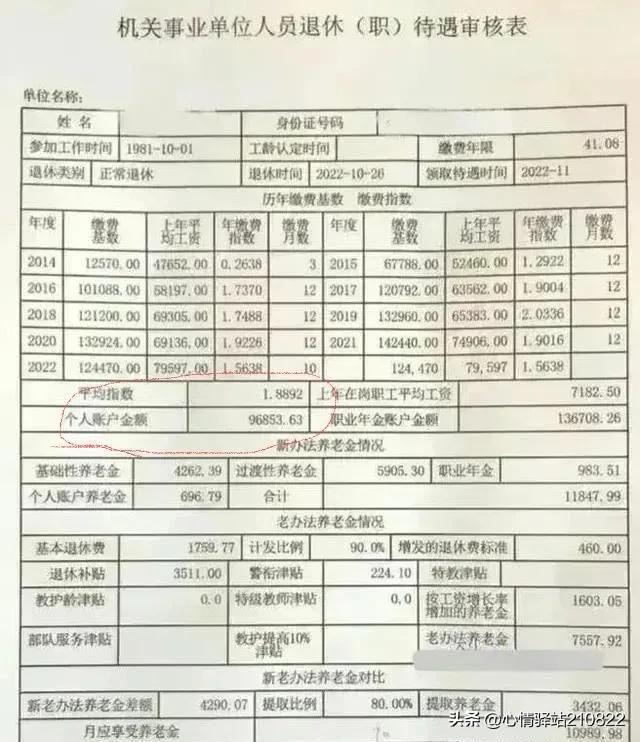 机关事业单位人员退休（职）待遇审核表
单位名称：
姓 名 身份证号码
参加工作时间 1981-10-01 工龄认定时间 缴费年限 41.08
退休类别 正常退休 退休时间 2022-10-26 领取待遇时间 2022-11
历年缴费基数 缴费指数
年度 缴费基数 上年平均工资 年缴费指数 缴费月数 年度 缴费基数 上年平均工资 年缴费指数 缴费月数
2014 12570.00 47652.00 0.2638 3 2015 67788.00 52460.00 1.2922 12
2016 101088.00 58197.00 1.7370 12 2017 120792.00 63562.00 1.9004 12
2018 121200.00 69305.00 1.7488 12 2019 132960.00 65383.00 2.0336 12
2020 132924.00 69136.00 1.9226 12 2021 142440.00 74906.00 1.9016 12
2022 124470.00 79597.00 1.5638 10 124,470 79,597 1.5638
平均指数 1.8892 上年在岗职工平均工资 7182.50
个人账户金额 96853.63 职业年金账户金额 136708.26
新办法养老金情况
基础性养老金 4262.39 过渡性养老金 5905.30 职业年金 983.51
个人账户养老金 696.79 合计 11847.99
老办法养老金情况
基本退休费 1759.77 计发比例 90.0% 增发的退休费标准 460.00
退休补贴 3511.00 警衔津贴 224.10 特教津贴
教护龄津贴 0.0 特级教师津贴 0.0 按工资增长率增加的养老金 1603.05
部队服务津贴 教护提高10%津贴 老办法养老金 7557.92
新老办法养老金对比
新老办法养老金差额 4290.07 提取比例 80.00% 提取养老金 3432.06
月应享受养老金 10989.98
头条 @心情驿站210822